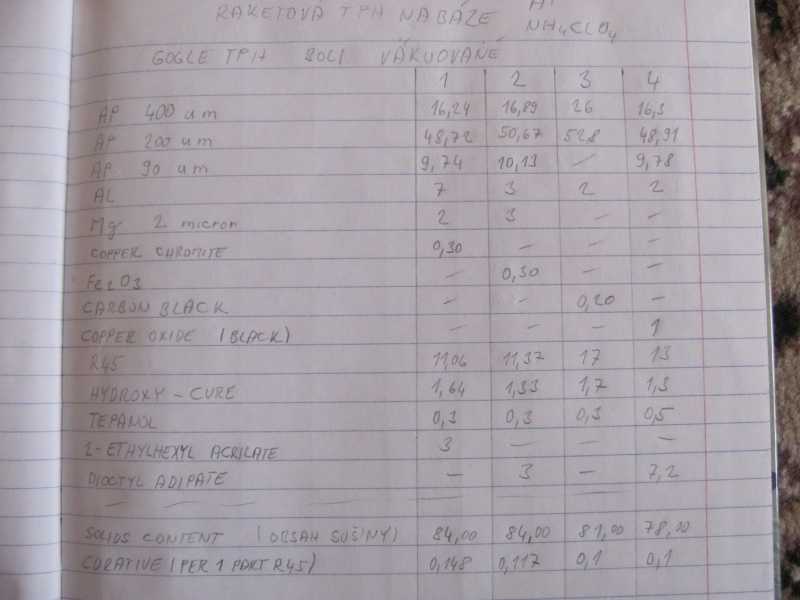 RAKETOVA TPH NA BÁZE NH4ClO4
GOGLE TPH BOLI VÁKUOVANÉ
1 2 3 4
AP 400 um 16,24 16,89 26 16,3
AP 200 um 48,72 50,67 52,8 48,91
AP 90 um 9,74 10,13 — 9,78
AL 7 3 2 2
Mg 2 micron 2 3 — —
COPPER CHROMITE 0,30 — — —
Fe2O3 — 0,30 — —
CARBON BLACK — — 0,20 —
COPPER OXIDE (BLACK) — — — 1
R45 11,06 11,37 17 13
HYDROXY - CURE 1,64 1,33 1,7 1,3
TEPANOL 0,3 0,3 0,3 0,5
2-ETHYLHEXYL ACRILATE 3 — — —
DIOCTYL ADIPATE — 3 — 7,2
SOLIDS CONTENT (OBSAH SUŠINY) 84,00 84,00 81,00 78,00
CURATIVE (PER 1 PART R45) 0,148 0,117 0,1 0,1